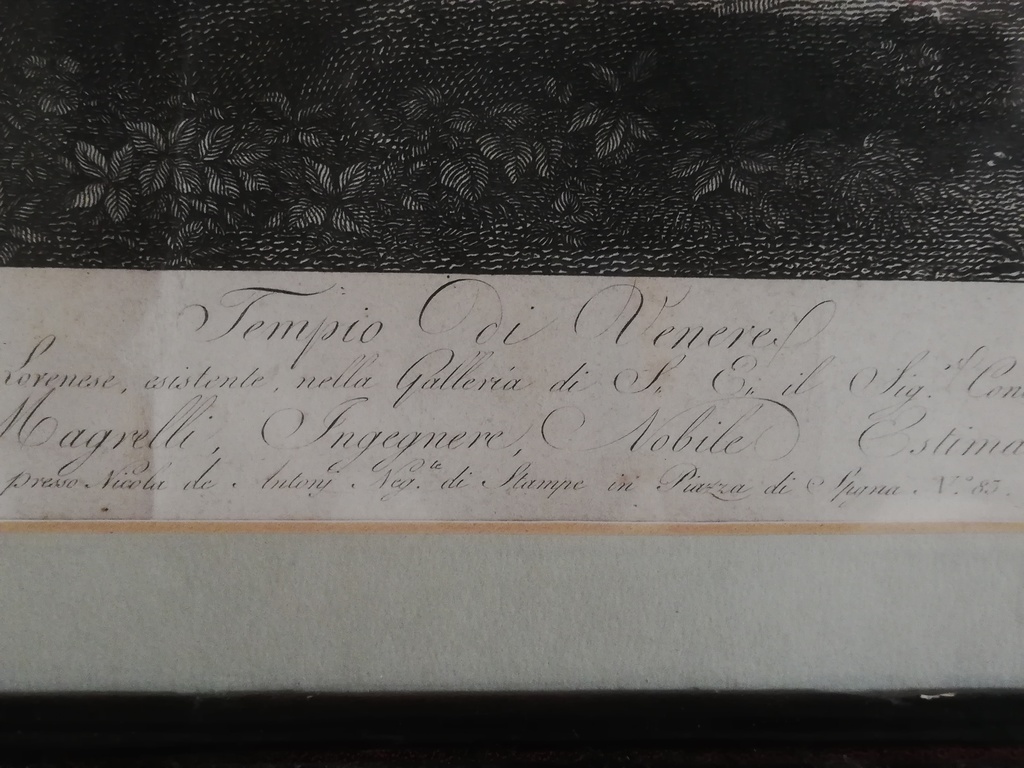 Tempio di Venere
Lorenese, esistente, nella Galleria di S. E. il Sig.r Con
Magrelli, Ingegnere, Nobile Estima
presso Nicola de Antonj Neg.te di Stampe in Piazza di Spgna N.o 83.